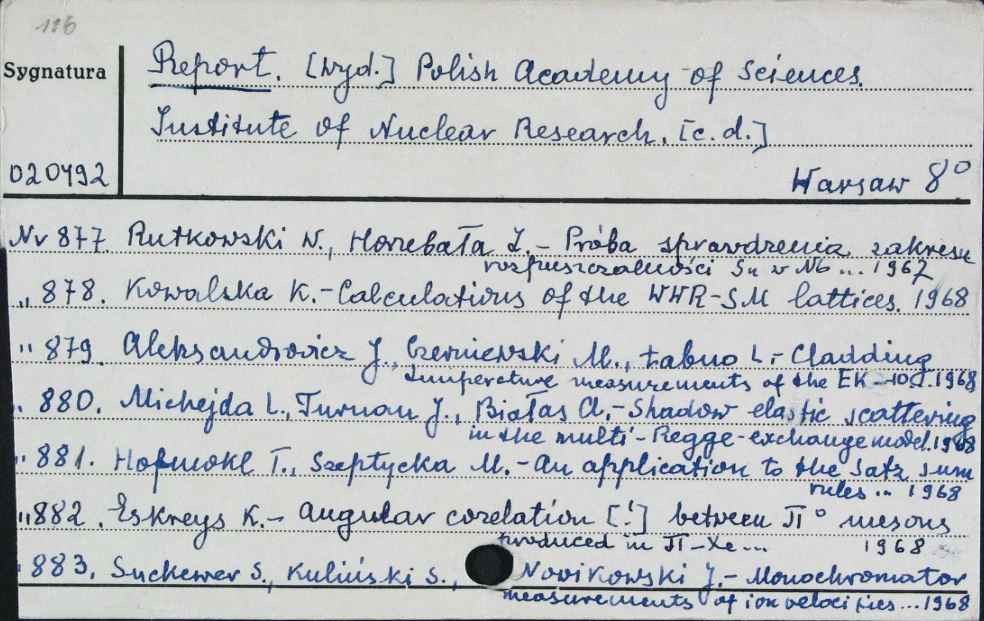 116
Report. [Wyd.] Polish Academy of Sciences.
Sygnatura
Institute of Nuclear Research. [c.d.]
020492
Warsaw 8°
Nr 877 Rutkowski W., Horzebała J. - Próba sprawdzenia zakresu
rozpuszczalności Sn w Nb ... 1967
,, 878. Kowalska K. - Calculations of the WWR-SM lattices. 1968
,, 879 Aleksandrowicz J., Czerniewski M., Łabno L. - Cladding
temperature measurements of the EK-10 1968
,, 880. Michejda L., Turnau J., Białas A. - Shadow elastic scattering
in the multi-Regge-exchange model. 1968
,, 881. Hofmokl T., Szeptycka M. - An application to the Satz sum
rules ... 1968
,, 882. Eskreys K. - Angular corelation [!] between π° mesons
produced in π-Xe ... 1968
,, 883. Suckewer S., Kuliński S., Nowikowski J. - Monochromator
measurements of ion velocities ... 1968